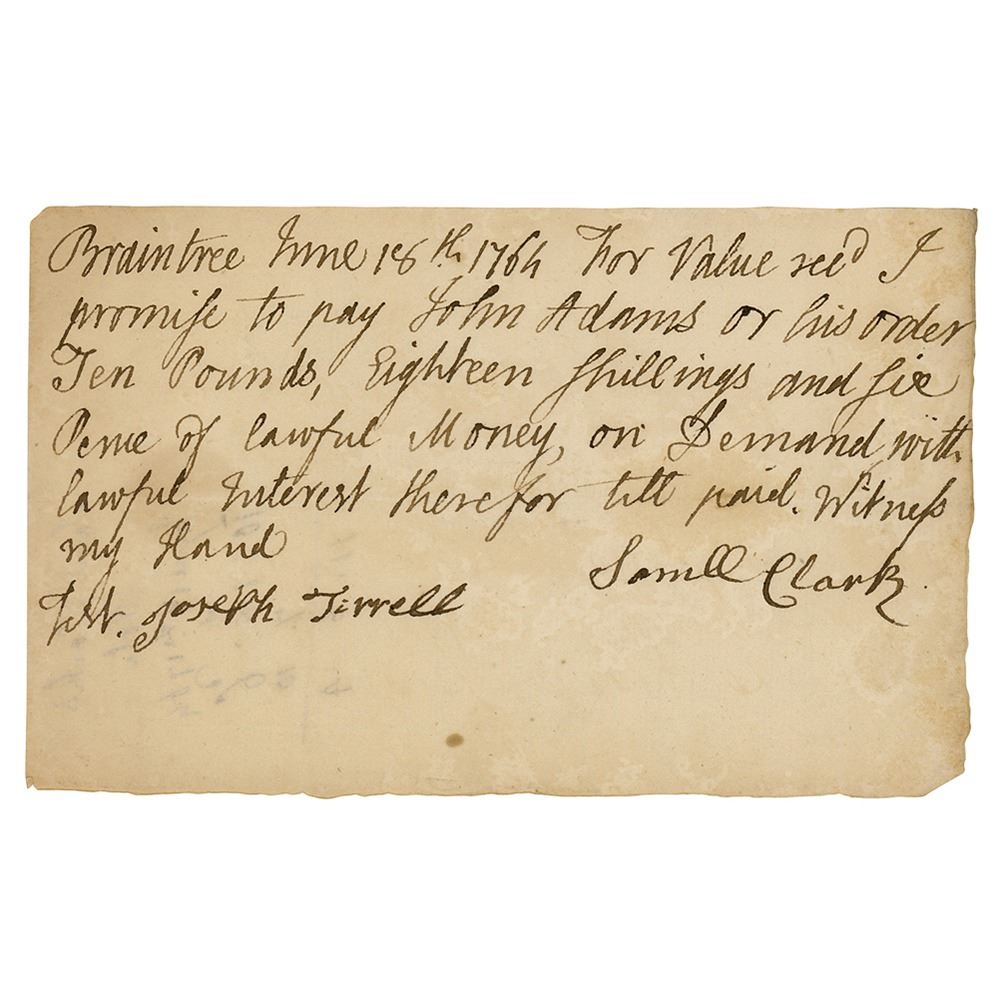 Braintree June 18th. 1764 For Value recd I
promise to pay John Adams or his order
Ten Pounds, Eighteen Shillings and Six
Pence of lawful Money, on Demand, with
lawful Interest therefor till paid. Witness
my Hand
Samll Clark.
Test. Joseph Tirrell